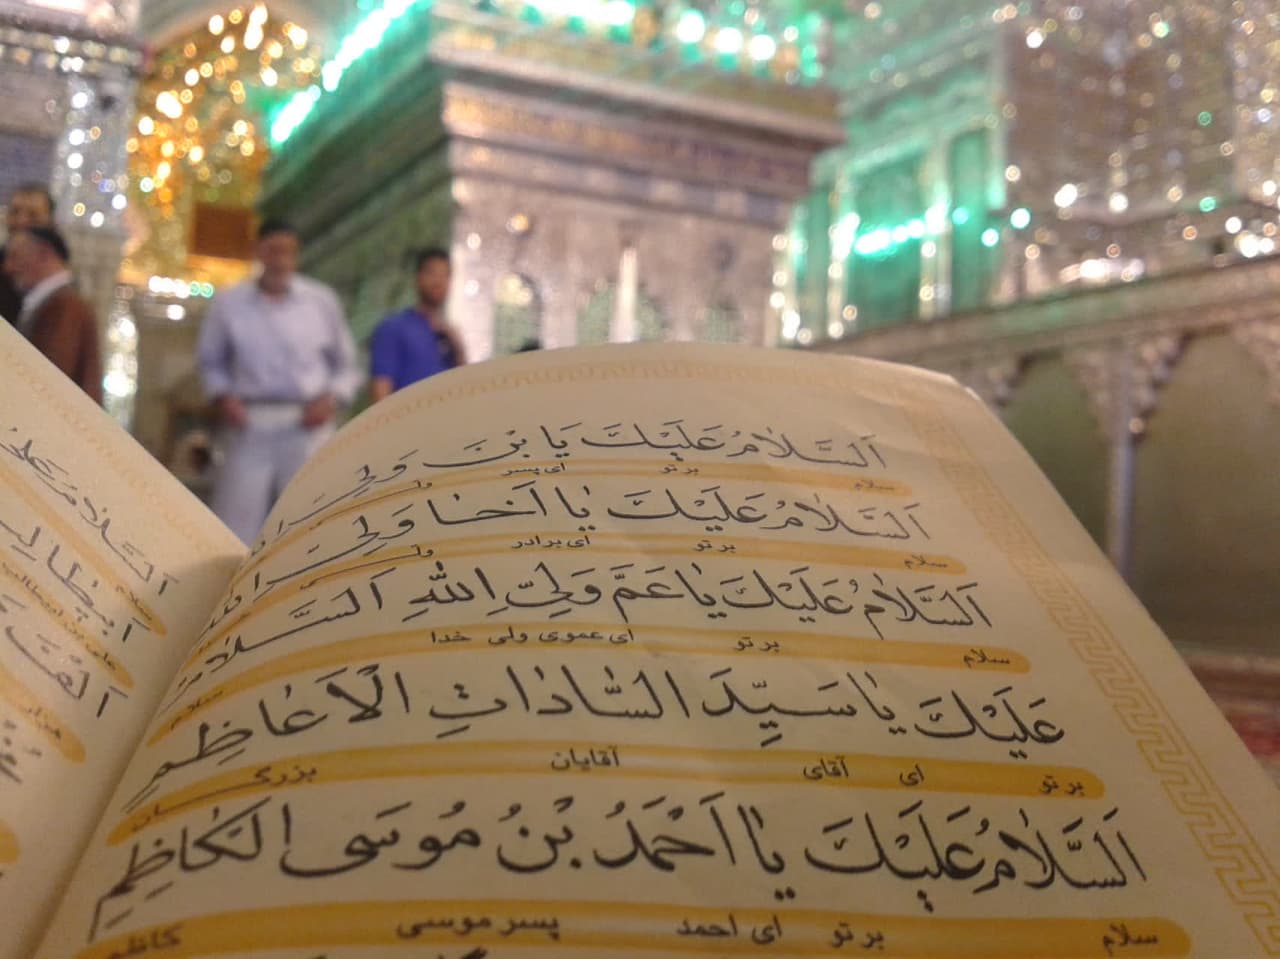 اَلسَّلامُ عَلَيْكَ يَا بْنَ وَلِيِّ
سلام بر تو ای پسر
اَلسَّلامُ عَلَيْكَ يا اَخا وَلِيِّ
سلام بر تو ای برادر
اَلسَّلامُ عَلَيْكَ يا عَمَّ وَلِيِّ اللّٰهِ اَلسَّلامُ
سلام بر تو ای عموی ولی خدا سلام
عَلَيْكَ يا سَيِّدَ السّاداتِ الْاَعاظِمِ
بر تو ای آقای آقایان بزرگ
اَلسَّلامُ عَلَيْكَ يا اَحْمَدُ بْنُ مُوسَى الْكاظِمِ
سلام بر تو ای احمد پسر موسی کاظم
اَلسَّلامُ
سلام
اَبيطالِبٍ
علی بن ابیطالب